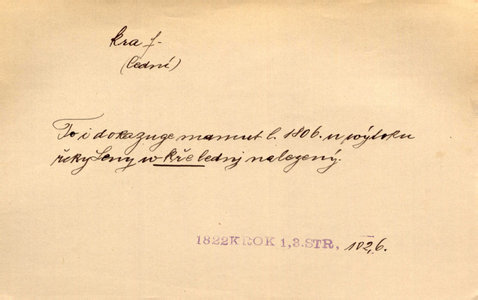 kra f.
(lední)
To i dokazuge mamut l. 1806. u wýtoku
řeky Leny w kře lednj nalezený.
1822KROK 1,3.STR, 102,6.